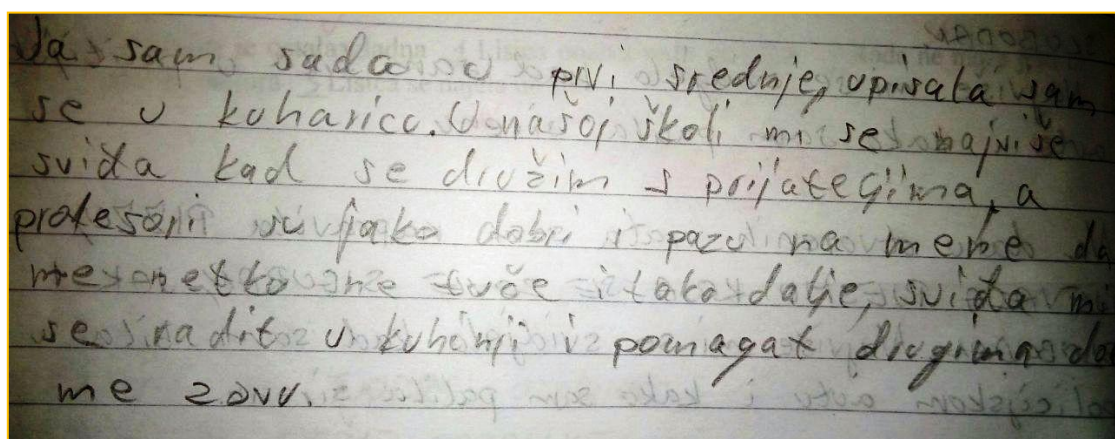 Ja sam sada u prvi srednje, upisala sam
se u kuharicu. U našoj školi mi se najviše
sviđa kad se družim s prijategima, a
profesori su jako dobri i pazu na mene da
me netko ne tuče i tako dalje, sviđa mi
se radit u kuhinji i pomagat drugima da
me zovu.